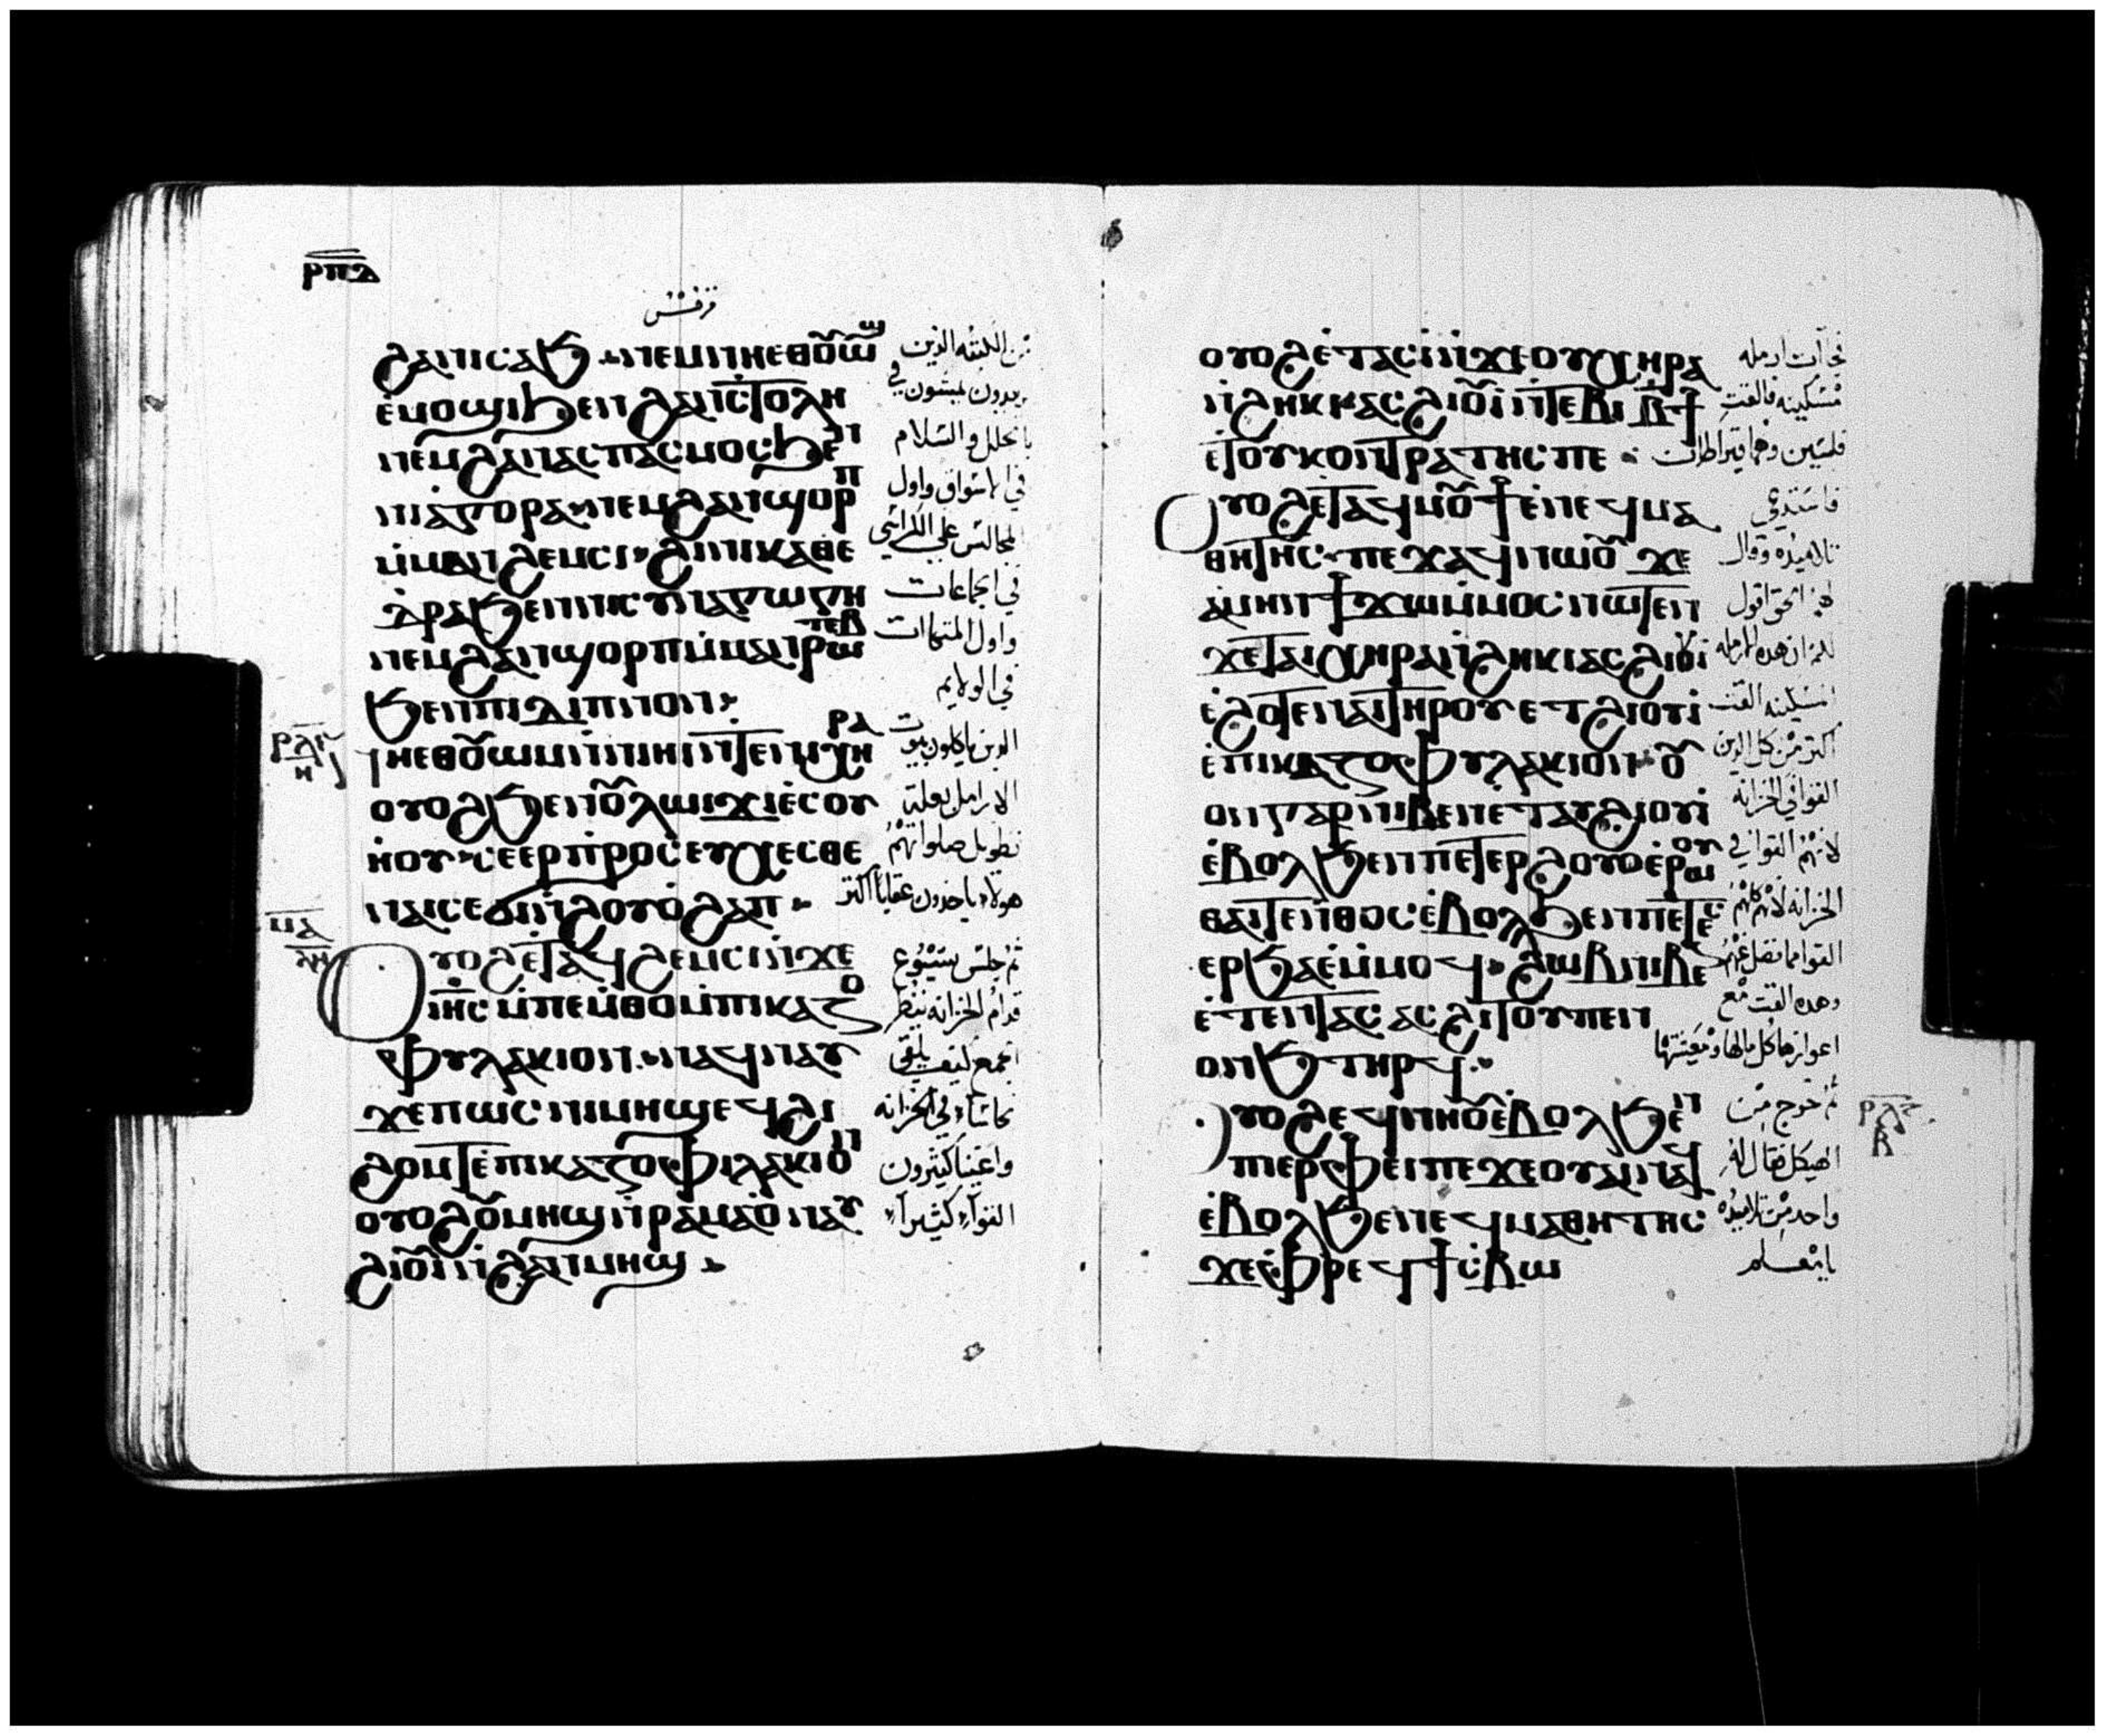 ⲣⲡⲇ
ϩⲁⲛⲥⲁϧ ⲛⲧⲉⲙⲛⲏⲉⲑⲟⲩⲱϣ
ⲉⲙⲟϣⲓϧⲉⲛϩⲁⲛⲥⲧⲟⲗⲏ
ⲛⲉⲙϩⲁⲛⲁⲥⲡⲁⲥⲙⲟⲥϧⲉⲛ
ⲛⲓⲁⲅⲟⲣⲁ ⲛⲉⲙϩⲁⲛϣⲟⲣⲡ
ⲙⲙⲁⲛϩⲉⲙⲥⲓ ϩⲓⲛⲓⲕⲁⲑⲉ
ⲇⲣⲁϧⲉⲛⲛⲓⲥⲩⲛⲁⲅⲱⲅⲏ
ⲛⲉⲙϩⲁⲛϣⲟⲣⲡⲙⲙⲁⲛⲣⲱⲧⲉⲃ
ϧⲉⲛⲡⲓⲇⲓⲡⲛⲟⲛ
ⲛⲏⲉⲑⲟⲩⲱⲙⲛⲛⲓⲏⲓⲛⲧⲉⲛⲓⲭⲏⲣⲁ
ⲟⲩⲟϩϧⲉⲛⲟⲩⲗⲱⲓϫⲓⲉⲥⲟⲩ
ⲏⲟⲩ ⲥⲉⲉⲣⲡⲣⲟⲥⲉⲩⲭⲉⲥⲑⲉ
ⲛⲁⲓⲥⲉϭⲓⲛϩⲟⲩⲟϩⲁⲡ
ⲟⲩⲟϩⲉⲧⲁϥϩⲉⲙⲥⲓⲛϫⲉ
ⲓⲏⲥⲙⲡⲉⲙⲑⲟⲙⲡⲓⲕⲁⲍⲟ
ⲫⲩⲗⲁⲕⲓⲟⲛ ⲛⲁϥⲛⲁⲩ
ϫⲉⲡⲱⲥⲡⲓⲙⲏϣⲉϥϩⲓ
ϩⲟⲙⲧⲉⲡⲓⲕⲁⲍⲟⲫⲓⲗⲁⲕⲓⲟⲛ
ⲟⲩⲟϩⲟⲩⲙⲏϣⲛⲣⲁⲙⲁⲟⲛⲁⲩ
ϩⲓⲟⲩⲓⲛϩⲁⲛⲙⲏϣ
من الكتبه الذين
يريدون يمشون في
بالحلل والسلام
في الاسواق واول
المجالس علي الكراسي
في الجماعات
واول المتكاات
في الولايم
الذين ياكلون بيوت
الارامل بعلة
تطويل صلواتهم
هولاء ياخذون عقابا اكثر
ثم جلس يسوع
قدام الخزانه ينظر
الجمع كيف يلقي
نحاسا في الخزانه
واغنيا كثيرون
القوا كثيرا
ⲙⲁ
ⲟⲩⲟϩⲉⲧⲁⲥⲓⲛϫⲉⲟⲩⲭⲏⲣⲁ
ⲛϩⲏⲕⲓ ⲁⲥϩⲓⲟⲩⲓⲛⲧⲉⲃⲓ ⲃϯ
ⲉⲧⲟⲩⲕⲟⲛⲧⲣⲁⲧⲏⲥⲡⲉ
ⲟⲩⲟϩⲉⲧⲁϥⲙⲟⲩϯⲉⲛⲉϥⲙⲁ
ⲑⲏⲧⲏⲥ ⲡⲉϫⲁϥⲛⲱⲟⲩ ϫⲉ
ⲁⲙⲏⲛϯϫⲱⲙⲙⲟⲥⲛⲱⲧⲉⲛ
ϫⲉⲧⲁⲓⲭⲏⲣⲁⲛϩⲏⲕⲓⲁⲥϩⲓⲟⲩⲓ
ⲉϩⲟⲧⲉⲛⲁⲓⲧⲏⲣⲟⲩ ⲉⲧϩⲓⲟⲩⲓ
ⲉⲡⲓⲕⲁⲍⲟⲫⲩⲗⲁⲕⲓⲟⲛ ⲟⲩ
ⲟⲛⲅⲁⲣⲛⲓⲃⲉⲛⲉⲧⲁⲩϩⲓⲟⲩⲓ
ⲉⲃⲟⲗϧⲉⲛⲡⲉⲧⲉⲣϩⲟⲩⲟⲉⲣⲱⲟⲩ
ⲑⲁⲓⲧⲉⲛⲑⲟⲥⲉⲃⲟⲗϧⲉⲛⲡⲉⲧⲉⲥ
ⲉⲣϧⲁⲉⲙⲙⲟϥ ϩⲱⲃⲛⲓⲃⲉⲛ
ⲉⲧⲉⲛⲧⲁⲥ ⲁⲥϩⲓⲧⲟⲩⲡⲉⲛ
ⲱⲛϧ ⲧⲏⲣϥ
ⲟⲩⲟϩⲉϥⲛⲏⲟⲩⲉⲃⲟⲗϧⲉⲛ
ⲡⲓⲉⲣⲫⲉⲓⲡⲉϫⲉⲟⲩⲁⲓⲛⲁϥ
ⲉⲃⲟⲗϧⲉⲛⲛⲉϥⲙⲁⲑⲏⲧⲏⲥ
ϫⲉⲫⲣⲉϥϯⲥⲃⲱ
فجات ارمله
مسكينه فالقت
فلسين وهما قيراطان
فاستدعي
تلاميذه وقال
لهم الحق اقول
لكم ان هذه الارمله
المسكينه القت
اكثر من كل الذين
القوا في الخزانه
لانهم القوا في
الخزانه لانهم كلهم
القوا مما فضل عنهم
وهذه القت مع
اعوازها كل مالها ومعيشتها
ثم خرج من
الهيكل فقال له
واحد من تلاميذه
يا معلم